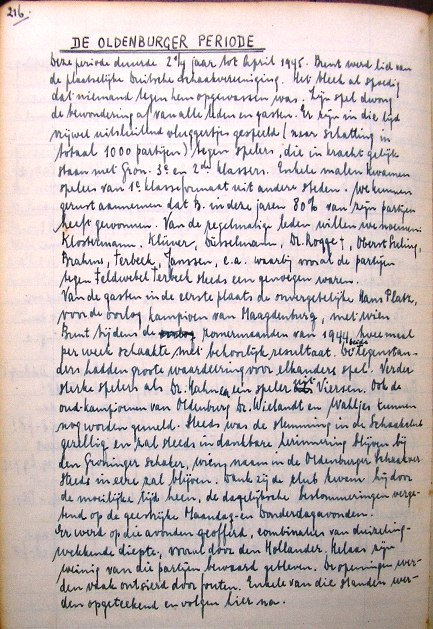 216.
DE OLDENBURGER PERIODE
Deze periode duurde 2¾ jaar tot April 1945. Brent werd lid van
de plaatselijke Duitsche schaakvereeniging. Het bleek al spoedig
dat niemand tegen hem opgewassen was. Zijn spel dwong
de bewondering af van alle leden en gasten. Er zijn in die tijd
vrijwel uitsluitend vluggertjes gespeeld (naar schatting in
totaal 1000 partijen) tegen spelers, die in kracht gelijk
staan met Gron. 3e en 2de klassers. Enkele malen kwamen
spelers van 1e klasseformaat uit andere steden. We kunnen
gerust aannemen dat B. in deze jaren 80% van zijn partijen
heeft gewonnen. Van de regelmatige leden willen we noemen:
Klostermann, Klüver, Düselmann, Dr. Rogge †, Oberst
Brahms, Terbeck, Janssen, e.a. waarbij vooral de partijen
tegen Feldwebel Terbeck steeds een genoegen waren.
Van de gasten in de eerste plaats de onvergetelijke Hans Platz,
voor de oorlog kampioen van Maagdenburg, met wien
Brent tijdens de zomermaanden van 1944 tweemaal
per week schaakte met behoorlijk resultaat. Beide tegenstan-
ders hadden groote waardeering voor elkanders spel. Verder
sterke spelers als Dr. Hahn en een speler uit Viersen. Ook de
oud-kampioenen van Oldenburg Dr. Wielandt en Waltjes kunnen
nog worden gemeld. Steeds was de stemming in de Schaakclub
gezellig en zal steeds in dankbare herinnering blijven bij
den Groninger schaker, wiens naam in de Oldenburger Schaakver.
steeds in eere zal blijven. Dank zij de club kwam hij door
de moeilijke tijd heen, de dagelijksche beslommeringen verge-
tend op de geestrijke Maandag- en Donderdagavonden.
Er werd op die avonden geofferd, combinaties van duizeling-
wekkende diepte, vooral door den Hollander. Helaas zijn
weinig van die partijen bewaard gebleven. De openingen wer-
den vaak ontsierd door fouten. Enkele van die standen wer-
den opgeteekend en volgen hier na.